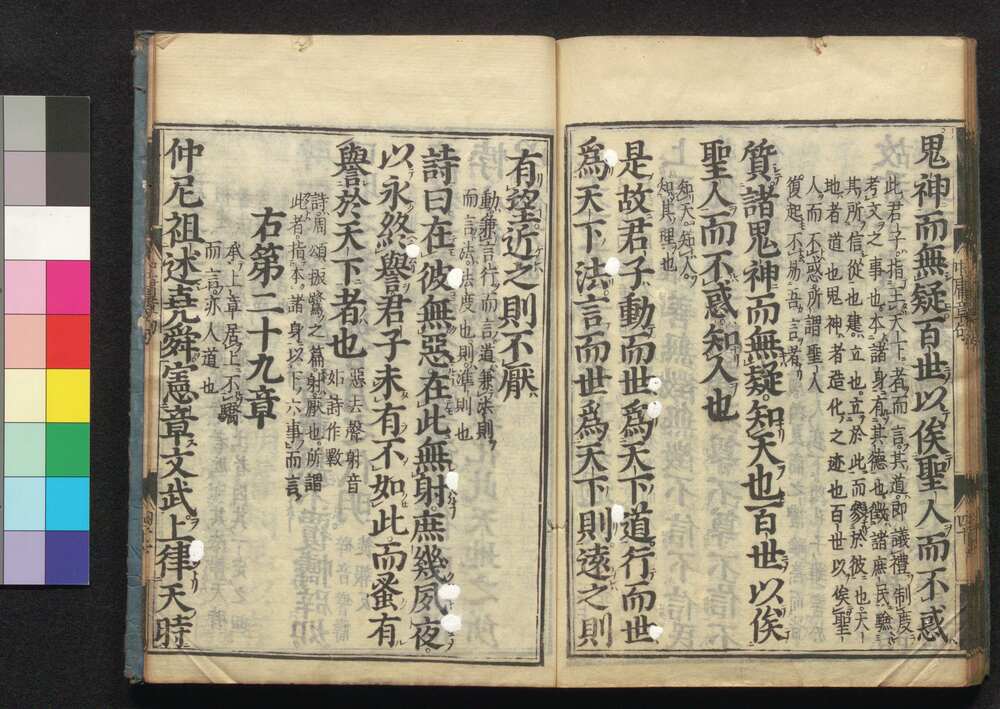 鬼神而無疑百世以俟聖人而不惑
此君子指王天下者而言其道即議禮制度
考文之事也本諸身有其德也徵諸庶民驗
其所信從也建立也立於此而參於彼也天
地者道也鬼神者造化之迹也百世以俟聖
人而不惑所謂聖人
復起不易吾言者
質諸鬼神而無疑知天也百世以俟
聖人而不惑知人也
知天知人
知其理也
是故君子動而世爲天下道行而世
爲天下法言而世爲天下則遠之則
有望近之則不厭
動兼言行而言道兼法則
而言法法度也則準則也
詩曰在彼無惡在此無射庶幾夙夜
以永終譽君子未有不如此而蚤有
譽於天下者也
惡去聲射音
妬詩作斁
詩周頌振鷺之篇射厭也所謂
此者指本諸身以下六事而言
右第二十九章
承上章居上不驕
而言亦人道也
仲尼祖述堯舜憲章文武上律天時